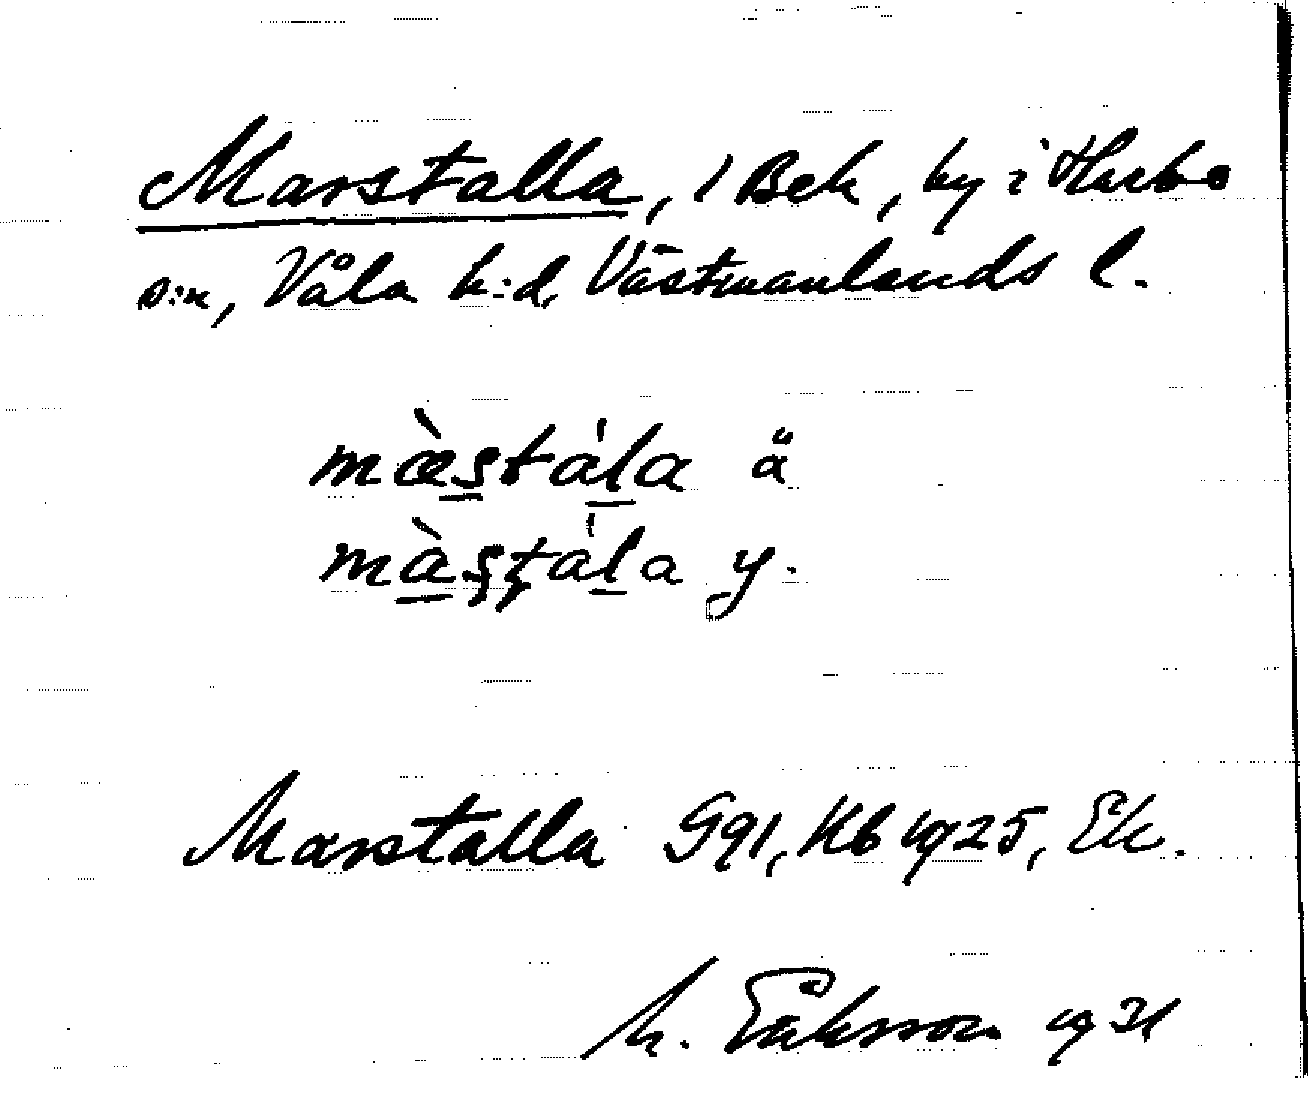 Marstalla, 1 Bek, by i Harbo
s:n, Våla h:d, Västmanlands l.
mæ̀stála ä
màstála y.
Marstalla G91, Kb 1925, Ek.
M. Eriksson 1931